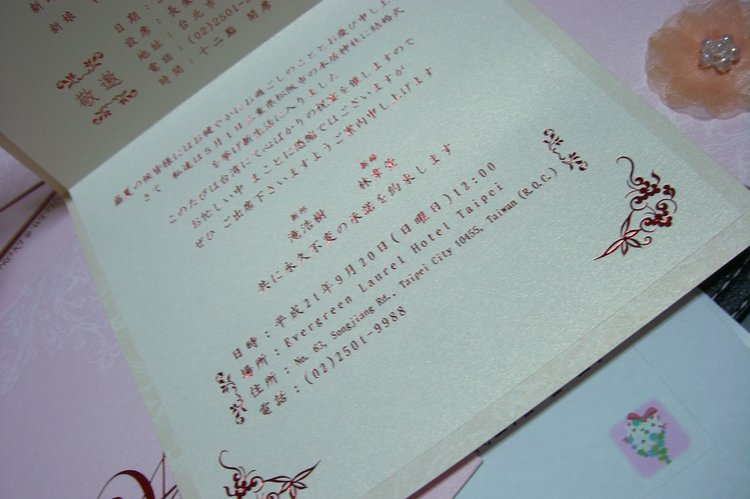 新娘
日期：
設席：長榮
地址：台北市
電話：(02)2501-
時間：十二點 開席
敬邀
盛夏の候皆様にはお健やかにお過ごしのこととお慶び申し上
さて 私達は5月1日三重県松阪市の本居神社に結婚式
を挙げ新生活に入りました
このたびは台湾にて心ばかりの祝宴を催しますので
お忙しい中 まことに恐縮ではございますが
ぜひ ご出席下さいますようご案内申し上げます
新郎 新婦
滝浩樹 林
共に永久不変の承諾を約束します
日時：平成21年9月20日(日曜日)12:00
場所：Evergreen Laurel Hotel Taipei
住所：No. 63, Songjiang Rd., Taipei City 10455, Taiwan (R.O.C.)
電話：(02)2501-9988